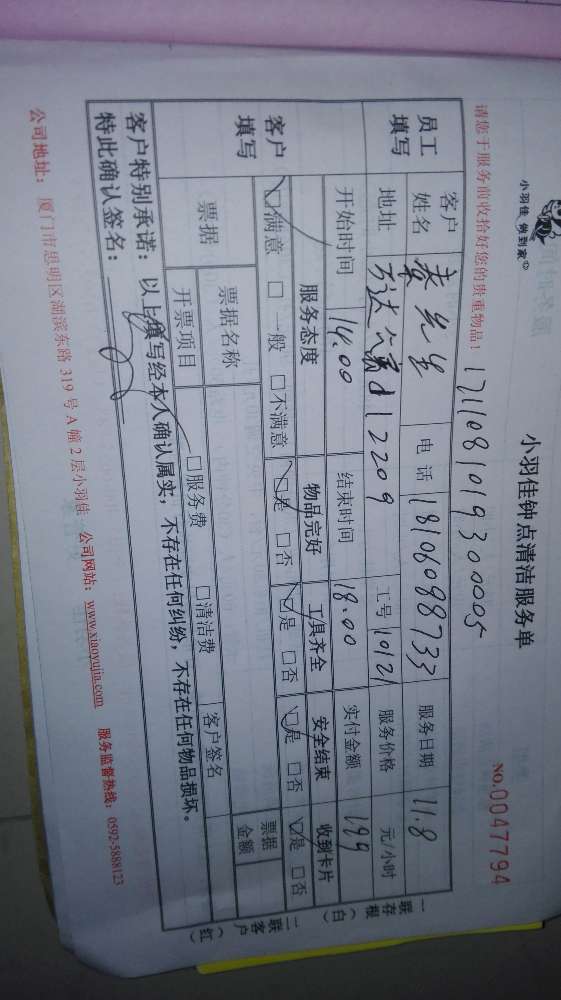 小羽佳 做到家
小羽佳钟点清洁服务单
NO.0047794
请您于服务前收拾好您的贵重物品！ 171108101930005
员工填写
客户姓名 先生 电话 18106098733 服务日期 11.8
地址 万达 d1 2209 工号 10121 服务价格 元/小时
开始时间 14.00 结束时间 18.00 实付金额 199
客户填写
服务态度 物品完好 工具齐全 安全结束 收到卡片
☑满意 □一般 □不满意 ☑是 □否 ☑是 □否 ☑是 □否 ☑是 □否
票据 票据名称 票据金额
开票项目 □服务费 □清洁费 客户签名
客户特别承诺：以上填写经本人确认属实，不存在任何纠纷，不存在任何物品损坏。
特此确认签名：
一联存根（白）
二联客户（红）
公司地址：厦门市思明区湖滨东路 319 号 A 幢 2 层小羽佳 公司网站：www.xiaoyujia.com 服务监督热线：0592-5888123